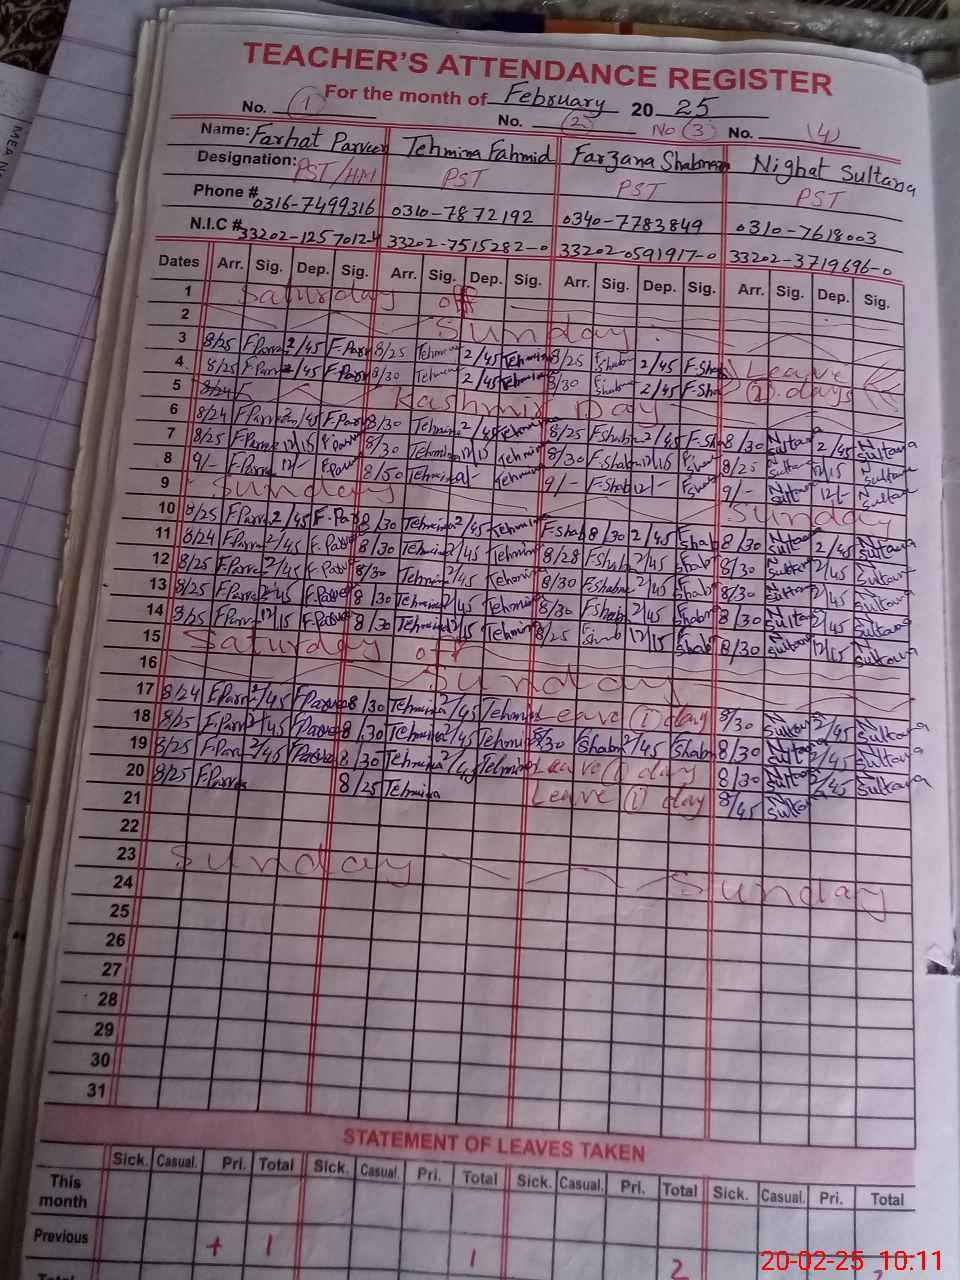 TEACHER'S ATTENDANCE REGISTER
For the month of February 20 25
No. (1) No. (2) No (3) No. (4)
Name: Farhat Parveen Tehmina Fahmid Farzana Shabnam Nighat Sultana
Designation: PST/HM PST PST PST
Phone # 0316-7499316 0310-7872192 0340-7783849 0310-7618003
N.I.C # 33202-1257012-4 33202-7515282-0 33202-0591917-0 33202-3719696-0
Dates Arr. Sig. Dep. Sig. Arr. Sig. Dep. Sig. Arr. Sig. Dep. Sig. Arr. Sig. Dep. Sig.
1 Saturday off
2 Sunday
3 8/25 F.Parve 2/45 F.Parv 8/25 Tehmina 2/45 Tehmina 8/25 F.Shab 2/45 F.Sha Leave
4 8/25 F.Parve 2/45 F.Parv 8/30 Tehmina 2/45 Tehmina 8/30 F.Shab 2/45 F.Sha (2) days
5 8/24 Kashmir Day
6 8/24 F.Parve 2/45 F.Parv 8/30 Tehmina 2/45 Tehmina 8/25 F.Shab 2/45 F.Sha 8/30 N Sultana 2/45 N Sultana
7 8/25 F.Parve 12/15 F.Parve 8/30 Tehmina 12/15 Tehmina 8/30 F.Shab 12/15 F.Shab 8/25 N Sultana 12/15 N Sultana
8 9/- F.Parve 12/- F.Parve 8/50 Tehmina Tehmina 9/- F.Shab 12/- F.Shab 9/- N Sultana 12/- N Sultana
9 Sunday Sunday
10 8/25 F.Parve 2/45 F.Par 8/30 Tehmina 2/45 Tehmina F.Shab 8/30 2/45 F.Shab 8/30 N Sultana 2/45 N Sultana
11 8/24 F.Parve 2/45 F.Parve 8/30 Tehmina 2/45 Tehmina 8/28 F.Shab 2/45 F.Shab 8/30 N Sultana 2/45 N Sultana
12 8/25 F.Parve 2/45 F.Parve 8/30 Tehmina 2/45 Tehmina 8/30 F.Shab 2/45 F.Shab 8/30 N Sultana 2/45 N Sultana
13 8/25 F.Parve 2/45 F.Parve 8/30 Tehmina 2/45 Tehmina 8/30 F.Shab 2/45 F.Shab 8/30 N Sultana 2/45 N Sultana
14 8/25 F.Parve 12/15 F.Parve 8/30 Tehmina 12/15 Tehmina 8/25 F.Shab 12/15 F.Shab 8/30 N Sultana 12/15 N Sultana
15 Saturday off
16 Sunday
17 8/24 F.Parv 2/45 F.Parve 8/30 Tehmina 2/45 Tehmina Leave (1) day 8/30 N Sultana 2/45 N Sultana
18 8/25 F.Parv 2/45 F.Parve 8/30 Tehmina 2/45 Tehmina 8/30 F.Shab 2/45 F.Shab 8/30 N Sultana 2/45 N Sultana
19 8/25 F.Parv 2/45 F.Parve 8/30 Tehmina 2/45 Tehmina Leave (1) day 8/30 N Sultana 2/45 N Sultana
20 8/25 F.Parve 8/25 Tehmina Leave (1) day 8/45 N Sultana
21
22
23 Sunday Sunday
24
25
26
27
28
29
30
31
STATEMENT OF LEAVES TAKEN
Sick. Casual. Pri. Total Sick. Casual. Pri. Total Sick. Casual. Pri. Total Sick. Casual. Pri. Total
This month
Previous + 1 1 2
20-02-25 10:11